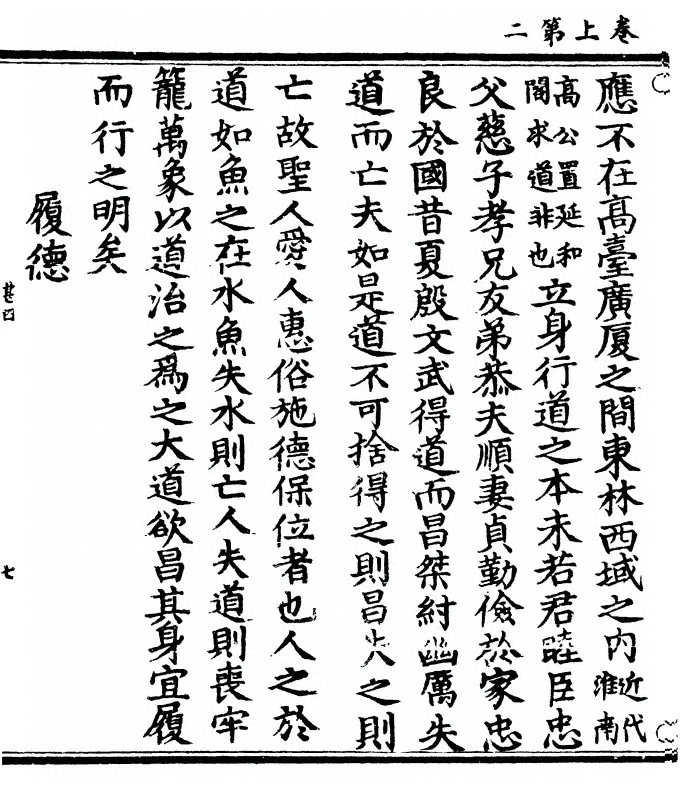 卷上第二
應不在高臺廣厦之間東林西域之内近代淮南
高公置延和閣求道非也立身行道之本未若君睦臣忠
父慈子孝兄友弟恭夫順妻貞勤儉於家忠
良於國昔夏殷文武得道而昌桀紂幽厲失
道而亡夫如是道不可捨得之則昌失之則
亡故聖人愛人惠俗施德保位者也人之於
道如魚之在水魚失水則亡人失道則喪牢
籠萬象以道治之爲之大道欲昌其身宜履
而行之明矣
履德
甚四
七